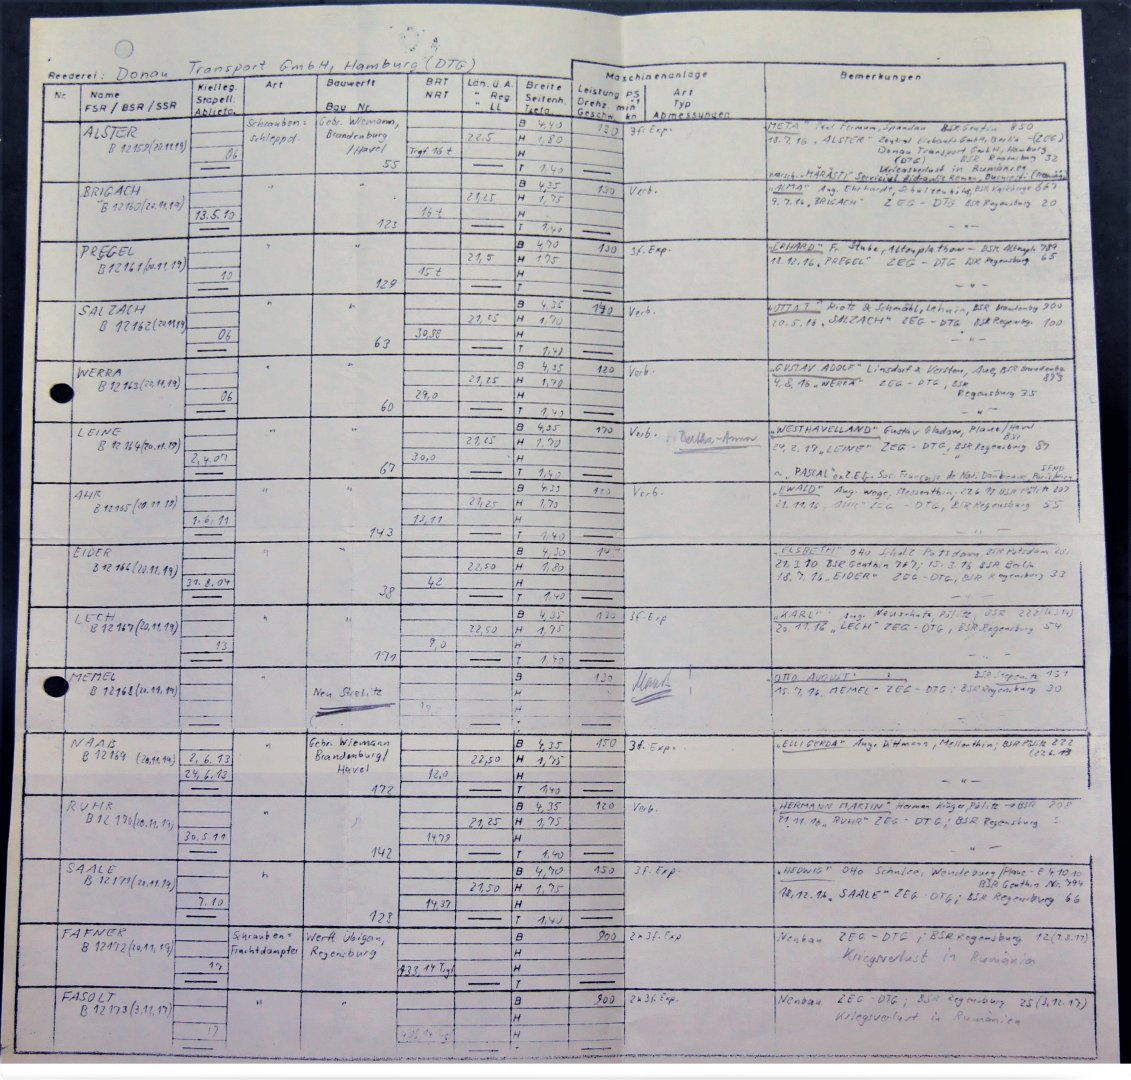 Reederei: Donau Transport GmbH, Hamburg (DTG)
Nr. Name FSR / BSR / SSR
Kielleg. Stapell. Abliefg.
Art
Bauwerft Bau Nr.
BRT NRT
Län. ü. A. " Reg LL
Breite Seitenh. Tiefg.
Maschinenanlage
Leistung PS Drehz. min⁻¹ Geschw. kn
Art Typ Abmessungen
Bemerkungen
ALSTER Schrauben= Gebr. Wiemann, B 4,40 3f. Exp. "META" Paul Fermum, Spandau BSR Genthin 850
B 12159 (20.11.19) schleppd. Brandenburg 22,5 H 1,80 18.7.16 "ALSTER" Zentral Einkaufs GmbH, Berlin - (ZEG)
06 /Havel Trgf. 16 t H Donau Transport GmbH, Hamburg
55 T 1,40 (DTG) BSR Regensburg 32
Kriegsverlust in Rumänien
"MĂRĂSTI"
BRIGACH " " B 4,35 130 Verb. "ALMA" Aug. Ehrhardt,
B 12160 (20.11.19) 21,25 H 1,75 9.7.16 "BRIGACH" ZEG - DTG BSR Regensburg 20
13.5.10 16 t H
123 T 1,40 - " -
PREGEL " " B 4,70 130 3f. Exp. "ERHARD" Fr. Stube, Altenplathow - BSR 789
B 12161 (20.11.19) 21,5 H 1,75 18.12.16 "PREGEL" ZEG - DTG BSR Regensburg 65
10 15 t H
129 T - " -
SALZACH " " B 4,35 Verb.
B 12162 (20.11.19) 21,25 H 1,70 20.5.16 "SALZACH" ZEG - DTG BSR Regensbg. 100
06 30,38 H
63 T 1,40 - " -
WERRA " " B 4,35 120 Verb. "GUSTAV ADOLF" Linsdorf & Kersten, BSR Brandenburg
B 12163 (20.11.19) 21,25 H 1,70 4.8.16 "WERRA" ZEG - DTG, BSR
06 29,0 H Regensburg 35
60 T 1,40 - " -
LEINE " " B 4,35 Verb. Bertha-Anna "WESTHAVELLAND" Gustav Gladow, Plaue/Havel
B 12164 (20.11.19) 21,25 H 1,70 24.2.17 "LEINE" ZEG - DTG, BSR Regensburg 87
2.4.07 30,0 H
67 T 1,40 "PASCAL"
AHR " " B 4,35 Verb. "EWALD" Aug. Wege,
B 12165 (20.11.19) 21,25 H 1,70 21.11.16 "AHR" ZEG - DTG, BSR Regensburg 55
1.6.11 13,11 H
143 T 1,40 - " -
EIDER " " B 4,50 "ELSBETH" Otto Scholz Potsdam BSR Potsdam
B 12166 (20.11.19) 22,50 H 1,80 21.3.10 BSR Genthin 767; 15.3.16 BSR Berlin
31.8.04 42 H 18.7.16 "EIDER" ZEG - DTG, BSR Regensburg 33
38 T 1,40 - " -
LECH " " B 4,35 130 3f. Exp "KARL" Aug. Neuschutz, Pölitz, BSR
B 12167 (20.11.19) 22,50 H 1,75 20.11.16 "LECH" ZEG - DTG, BSR Regensburg 54
13 9,0 H
171 T 1,40 - " -
MEMEL " B 130 "OTTO AUGUST" BSR
B 12168 (20.11.19) Neu Strelitz H 15.7.16 "MEMEL" ZEG - DTG; BSR Regensburg 30
H
T
NAAB " Gebr. Wiemann B 4,35 150 3f. Exp. "ELLI GERDA" Aug. Dittmann, Mellenthin; BSR Pölitz 222
B 12169 (20.11.19) 2.6.13 Brandenburg/ 22,50 H 1,75
24.6.13 Havel 12,0 H
172 T 1,40 - " -
RUHR " B 4,35 120 Verb. "HERMANN MARTIN" Herman Krüger, Pölitz BSR 208
B 12170 (20.11.19) 21,25 H 1,75 21.11.16 "RUHR" ZEG - DTG; BSR Regensburg
30.5.11 14,79 H
142 T 1,40 - " -
SAALE " B 4,70 150 3f. Exp. "HEDWIG" Otto Schulze, Wendeburg/Plaue
B 12171 (20.11.19) 21,50 H 1,75 BSR Genthin Nr. 794
7.10 14,37 H 18.12.16 "SAALE" ZEG - DTG; BSR Regensburg 66
128 T 1,40
FAFNER Schrauben= Werft Übigau, B 900 2x3f. Exp Neubau ZEG - DTG; BSR Regensburg 12 (7.8.17)
B 12172 (20.11.19) Frachtdampfer Regensburg H Kriegsverlust in Rumänien
17 433,14 Trgf H
T
FASOLT " " B 900 2x3f. Exp. Neubau ZEG - DTG; BSR Regensburg 25 (3.12.17)
B 12173 (3.12.17) H Kriegsverlust in Rumänien
17 H
T